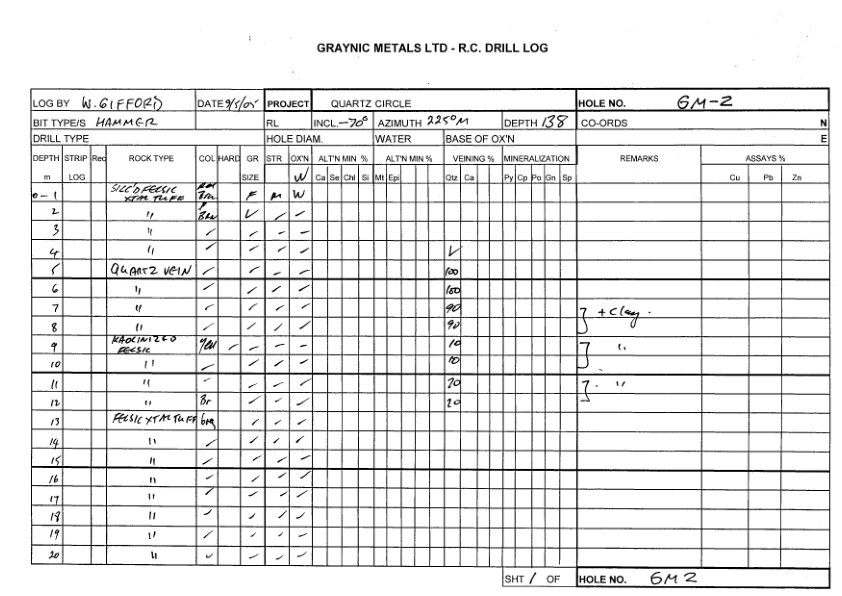 GRAYNIC METALS LTD - R.C. DRILL LOG
LOG BY W. GIFFORD DATE 9/5/05 PROJECT QUARTZ CIRCLE HOLE NO. GM-2
BIT TYPE/S HAMMER RL INCL. -70° AZIMUTH 225°M DEPTH 138 CO-ORDS N
DRILL TYPE HOLE DIAM. WATER BASE OF OX'N E
DEPTH STRIP Rec ROCK TYPE COL HARD GR STR OX'N ALT'N MIN % ALT'N MIN % VEINING % MINERALIZATION REMARKS ASSAYS %
m LOG SIZE W Ca Se Chl Si Mt Epi Qtz Ca Py Cp Po Gn Sp Cu Pb Zn
0-1 FELSIC XTAL TUFF Brn F M W
2 " Brn ✓ ✓ ✓
3 " ✓ ✓ – –
4 " ✓ ✓ ✓ ✓ V
5 QUARTZ VEIN ✓ ✓ – ✓ 100
6 " ✓ ✓ ✓ ✓ 100
7 " ✓ ✓ ✓ ✓ 90 + Clay.
8 " ✓ ✓ ✓ ✓ 90
9 KAOLINIZED FELSIC Yell ✓ – – – 10 "
10 " ✓ ✓ ✓ ✓ 10
11 " ✓ ✓ ✓ ✓ 20 "
12 " Br ✓ ✓ ✓ 20
13 FELSIC XTAL TUFF Grg ✓ ✓ ✓
14 " ✓ ✓ ✓ ✓
15 " ✓ ✓ ✓ ✓
16 " ✓ ✓ ✓ ✓
17 " ✓ ✓ ✓ ✓
18 " ✓ ✓ ✓ ✓
19 " ✓ ✓ ✓ ✓
20 " ✓ ✓ ✓ ✓
SHT 1 OF HOLE NO. GM 2